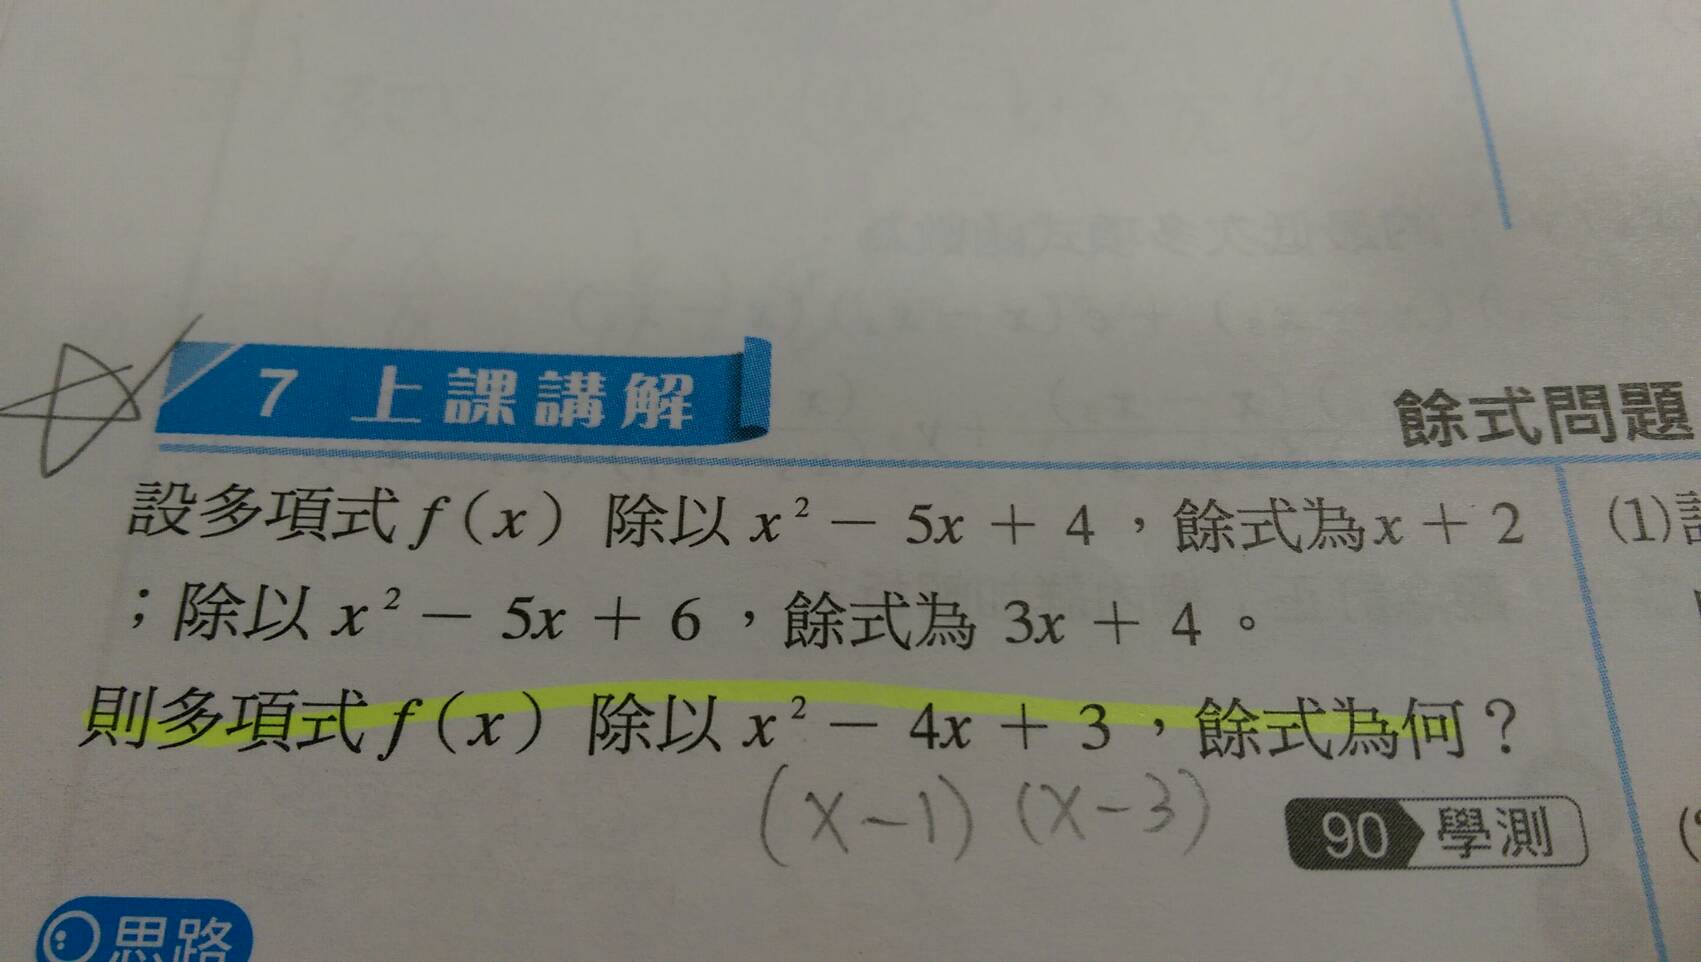 7 上課講解
餘式問題
設多項式 f(x) 除以 x² − 5x + 4，餘式為 x + 2
；除以 x² − 5x + 6，餘式為 3x + 4。
則多項式 f(x) 除以 x² − 4x + 3，餘式為何？
(x−1) (x−3)
90 學測
思路
(1)